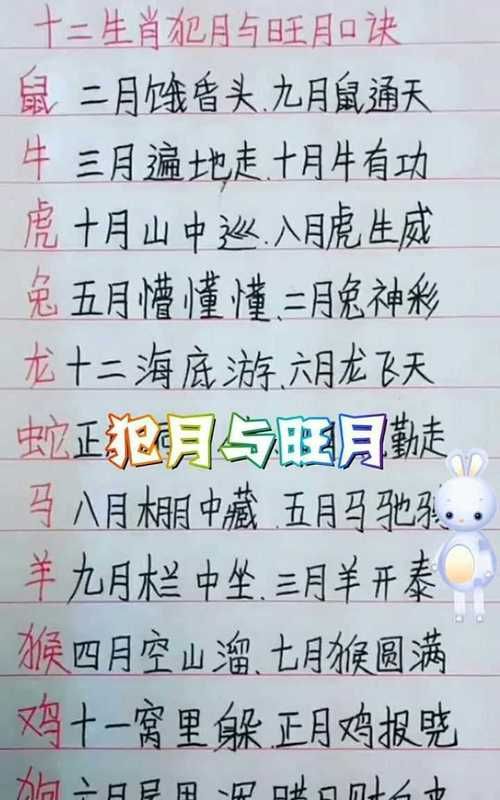 十二生肖犯月与旺月口诀
鼠 二月饿昏头、九月鼠通天
牛 三月遍地走、十月牛有功
虎 十月山中巡、八月虎生威
兔 五月懵懂懂、二月兔神彩
龙 十二海底游、六月龙飞天
蛇 正 勤走
犯月与旺月
马 八月棚中藏、五月马驰
羊 九月栏中坐、三月羊开泰
猴 四月空山溜、七月猴圆满
鸡 十一窝里躲、正月鸡报晓
狗 六月